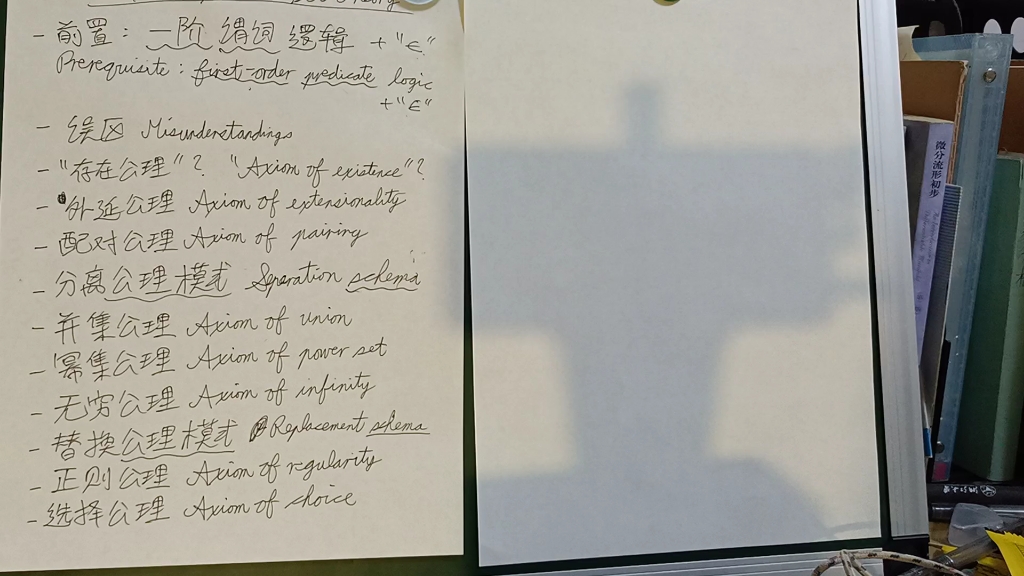 - 前置：一阶 谓词 逻辑 + "∈"
Prerequisite : first-order predicate logic
+ "∈"
- 误区 Misunderstandings
- "存在公理"？ "Axiom of existence"?
- 外延公理 Axiom of extensionality
- 配对公理 Axiom of pairing
- 分离公理模式 Separation schema
- 并集公理 Axiom of union
- 幂集公理 Axiom of power set
- 无穷公理 Axiom of infinity
- 替换公理模式 Replacement schema
- 正则公理 Axiom of regularity
- 选择公理 Axiom of choice
微分流形初步